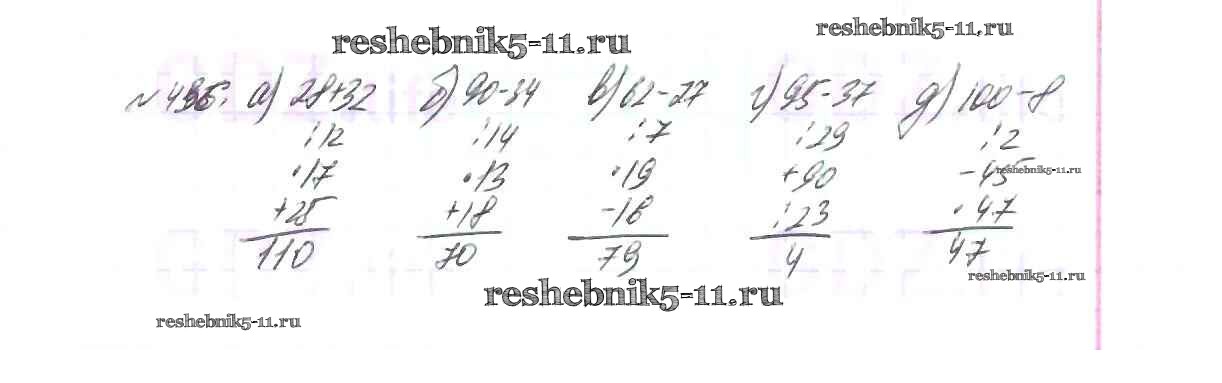 reshebnik5-11.ru
reshebnik5-11.ru
а) 28+32 б) 90-34 в) 62-27 г) 95-37 д) 100-8
:12 :14 :7 :29 :2
·17 ·13 ·19 +90 -45
reshebnik5-11.ru
+25 +18 -16 :23 ·47
110 70 79 4 47
reshebnik5-11.ru
reshebnik5-11.ru
reshebnik5-11.ru